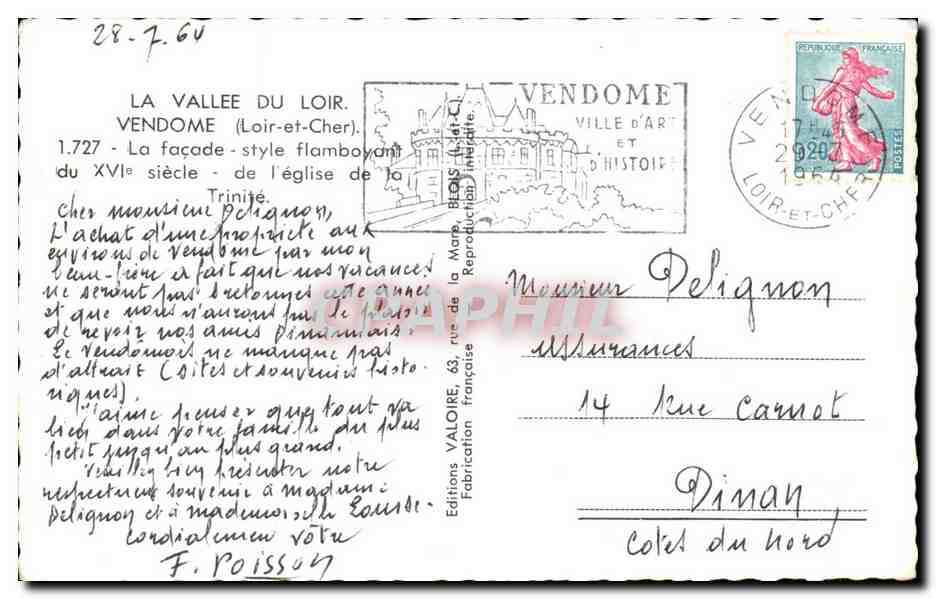 28-7-64
LA VALLEE DU LOIR.
VENDOME (Loir-et-Cher).
1.727 - La façade - style flamboyant
du XVIe siècle - de l'église de la
Trinité.
Cher monsieur Delignon,
L'achat d'une propriété aux
environs de Vendôme par mon
beau-frère a fait que nos vacances
ne seront pas bretonnes cette année
et que nous n'aurons pas le plaisir
de revoir nos amis Dinannais.
Le Vendômois ne manque pas
d'attrait (sites et souvenirs histo-
riques).
J'aime penser que tout va
bien dans votre famille du plus
petit jusqu'au plus grand.
Veuillez bien présenter notre
respectueux souvenir à madame
Delignon et à mademoiselle
Cordialement vôtre
F. Poisson
Editions VALOIRE, 63, rue de la Mare, BLOIS (L.-et-C.)
Fabrication française Reproduction interdite.
VENDOME
VILLE D'ART
ET
D'HISTOIRE
REPUBLIQUE FRANÇAISE
POSTES
0,20
VENDOME
17H45
29-7
1964
LOIR-ET-CHER
Monsieur Delignon
Assurances
14 Rue Carnot
Dinan
Cotes du Nord
CARAPHIL